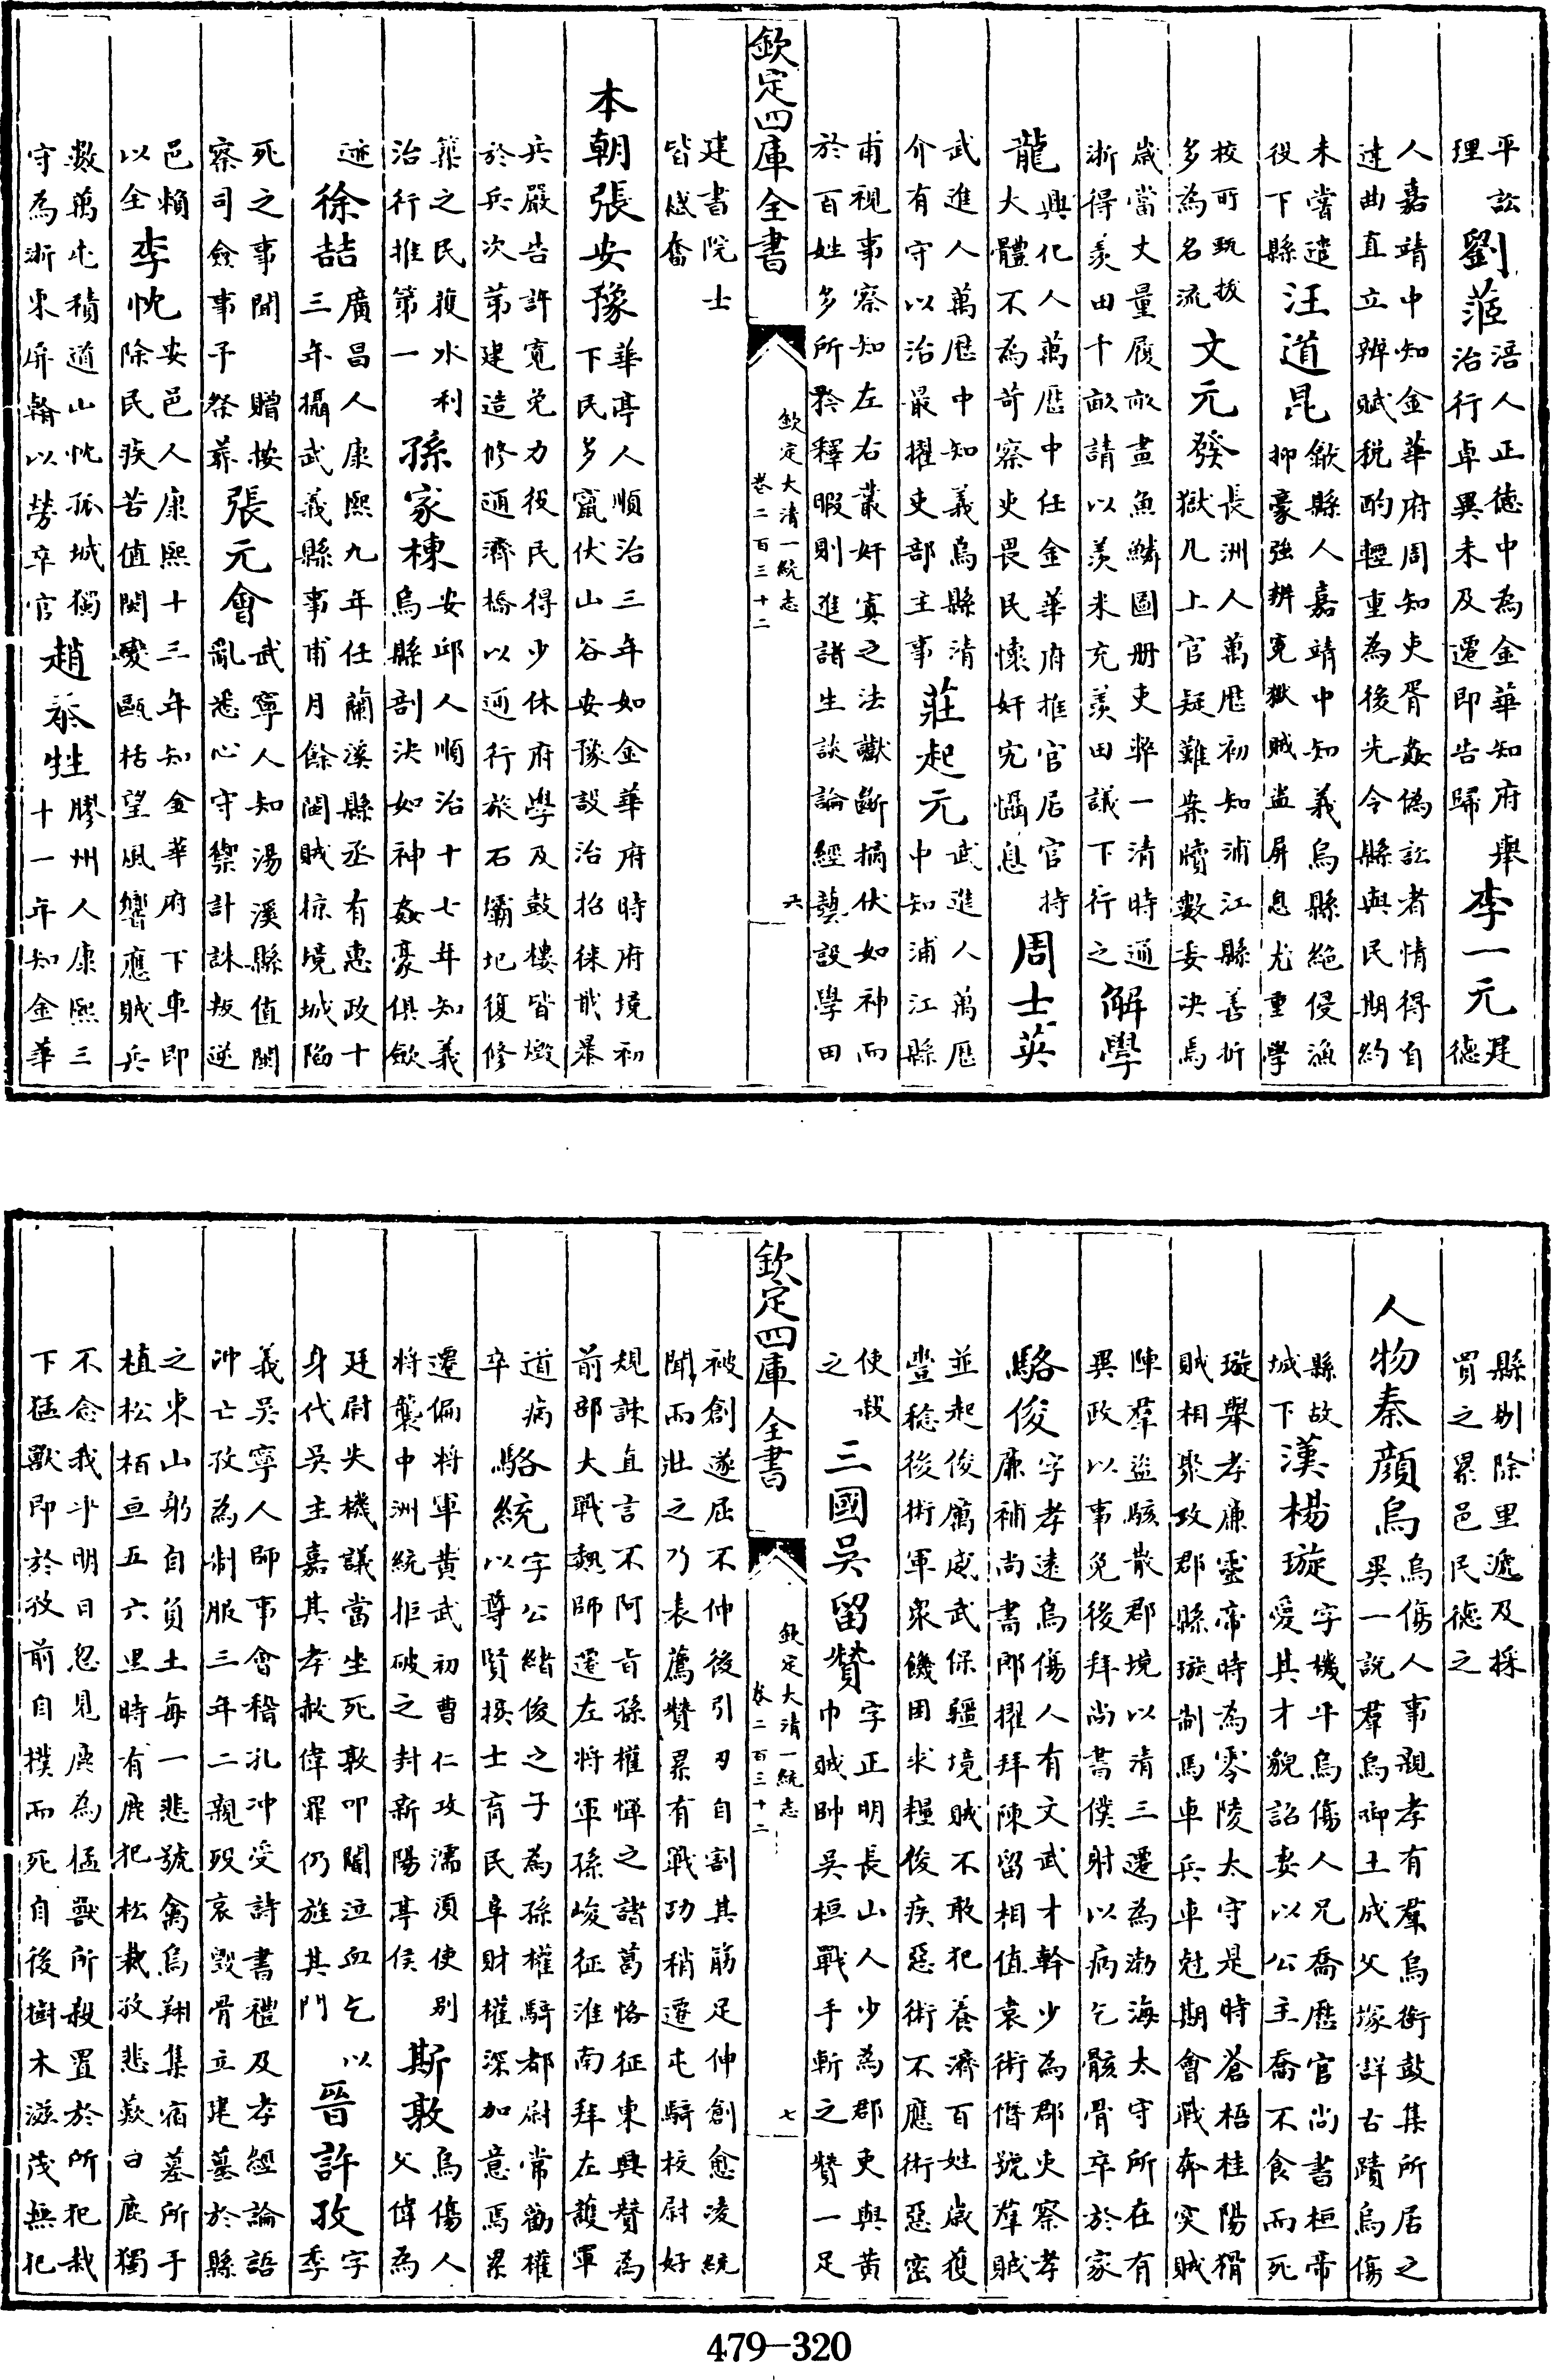 平訟理劉菃涪人正德中為金華知府舉治行卓異未及遷即告歸李一元建德
人嘉靖中知金華府周知吏胥姦偽訟者情得自達曲直立辨賦稅酌輕重為後先令縣與民期約
未嘗遣役下縣汪道昆歙縣人嘉靖中知義烏縣絕侵漁抑豪強辨冤獄賊盜屏息尤重學
校所甄拔多為名流文元發長洲人萬厯初知浦江縣善折獄凡上官疑難案牘數委決焉
歲當丈量履畝畫魚鱗圖册吏弊一清時通浙得羨田十畝請以羨米充羨田議下行之解學
龍興化人萬厯中任金華府推官居官持大體不為苛察吏畏民懷奸宄懾息周士英
武進人萬厯中知義烏縣清介有守以治最擢吏部主事莊起元武進人萬厯中知浦江縣
甫視事察知左右叢奸寘之法讞斷摘伏如神而於百姓多所矜釋暇則進諸生談論經藝設學田
欽定四庫全書 欽定大清一統志卷二百三十二 六
建書院士皆感奮
本朝張安豫華亭人順治三年如金華府時府境初下民多竄伏山谷安豫設治招徠戢暴
兵嚴告許寛免力役民得少休府學及鼓樓皆燬於兵次第建造修通濟橋以通行旅石壩圮復修
築之民獲水利治行推第一孫家棟安邱人順治十七年知義烏縣剖決如神姦豪俱斂
迹徐喆廣昌人康熙九年任蘭溪縣丞有惠政十三年攝武義縣事甫月餘閩賊掠境城陷
死之事聞贈按察司僉事予祭葬張元會武寧人知湯溪縣值閩亂悉心守禦計誅叛逆
邑賴以全李忱安邑人康熙十三年知金華府下車即除民疾苦值閩變甌括望風響應賊兵
數萬屯積道山忱孤城獨守為浙東屏翰以勞卒官趙泰甡膠州人康熙三十一年知金華
縣剔除里遞及採買之累邑民德之
人物秦顔烏烏傷人事親孝有羣烏銜鼓集所居之異一說羣烏㘅土成父塚詳古蹟烏傷
縣故城下漢楊璇字機平烏傷人兄喬厯官尚書桓帝愛其才貌詔妻以公主喬不食而死
璇舉孝廉靈帝時為零陵太守是時蒼梧桂陽猾賊相聚攻郡縣璇制馬車兵車尅期會戰奔突賊
陣羣盜駭散郡境以清三遷為渤海太守所在有異政以事免後拜尚書僕射以病乞骸骨卒於家
駱俊字孝遠烏傷人有文武才幹少為郡吏察孝廉補尚書郎擢拜陳留相值袁術僭號羣賊
並起俊厲威武保疆境賊不敢犯養濟百姓歲獲豐稔後術軍衆饑困求糧俊疾惡術不應術惡密
使殺之三國吳留贊字正明長山人少為郡吏與黃巾賊帥吳桓戰手斬之贊一足
欽定四庫全書 欽定大清一統志卷二百三十二 七
被創遂屈不伸後引刃自割其筋足伸創愈凌統聞而壯之乃表薦贊累有戰功稍遷屯騎校尉好
規諫直言不阿㫖孫權憚之諸葛恪征東興贊為前部大戰敗師遷左將軍孫峻征淮南拜左護軍
道病卒駱統字公緒俊之子為孫權騎都尉常勸權以尊賢接士育民阜財權深加意焉累
遷偏將軍黃武初曹仁攻濡須使别將襲中洲統拒破之封新陽亭侯斯敦烏傷人父偉為
廷尉失機議當坐死敦叩閽泣血乞以身代吳主嘉其孝赦偉罪仍旌其門晉許孜字季
義吳寧人師事會稽孔沖受詩書禮及孝經論語沖亡孜為制服三年二親殁哀毀骨立建墓於縣
之東山躬自負土每一悲號禽鳥翔集宿墓所于植松栢亘五六里時有鹿犯松栽孜悲歎曰鹿獨
不念我乎明日忽見鹿為猛獸所殺置於所犯栽下猛獸即於孜前自撲而死自後樹木滋茂無犯
479-320